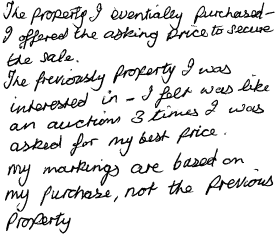 The property I eventually purchased -
I offered the asking price to secure
the sale.
The previously property I was
interested in - I felt was like
an auctions 3 times I was
asked for my best price.
my markings are based on
my purchase, not the previous
property